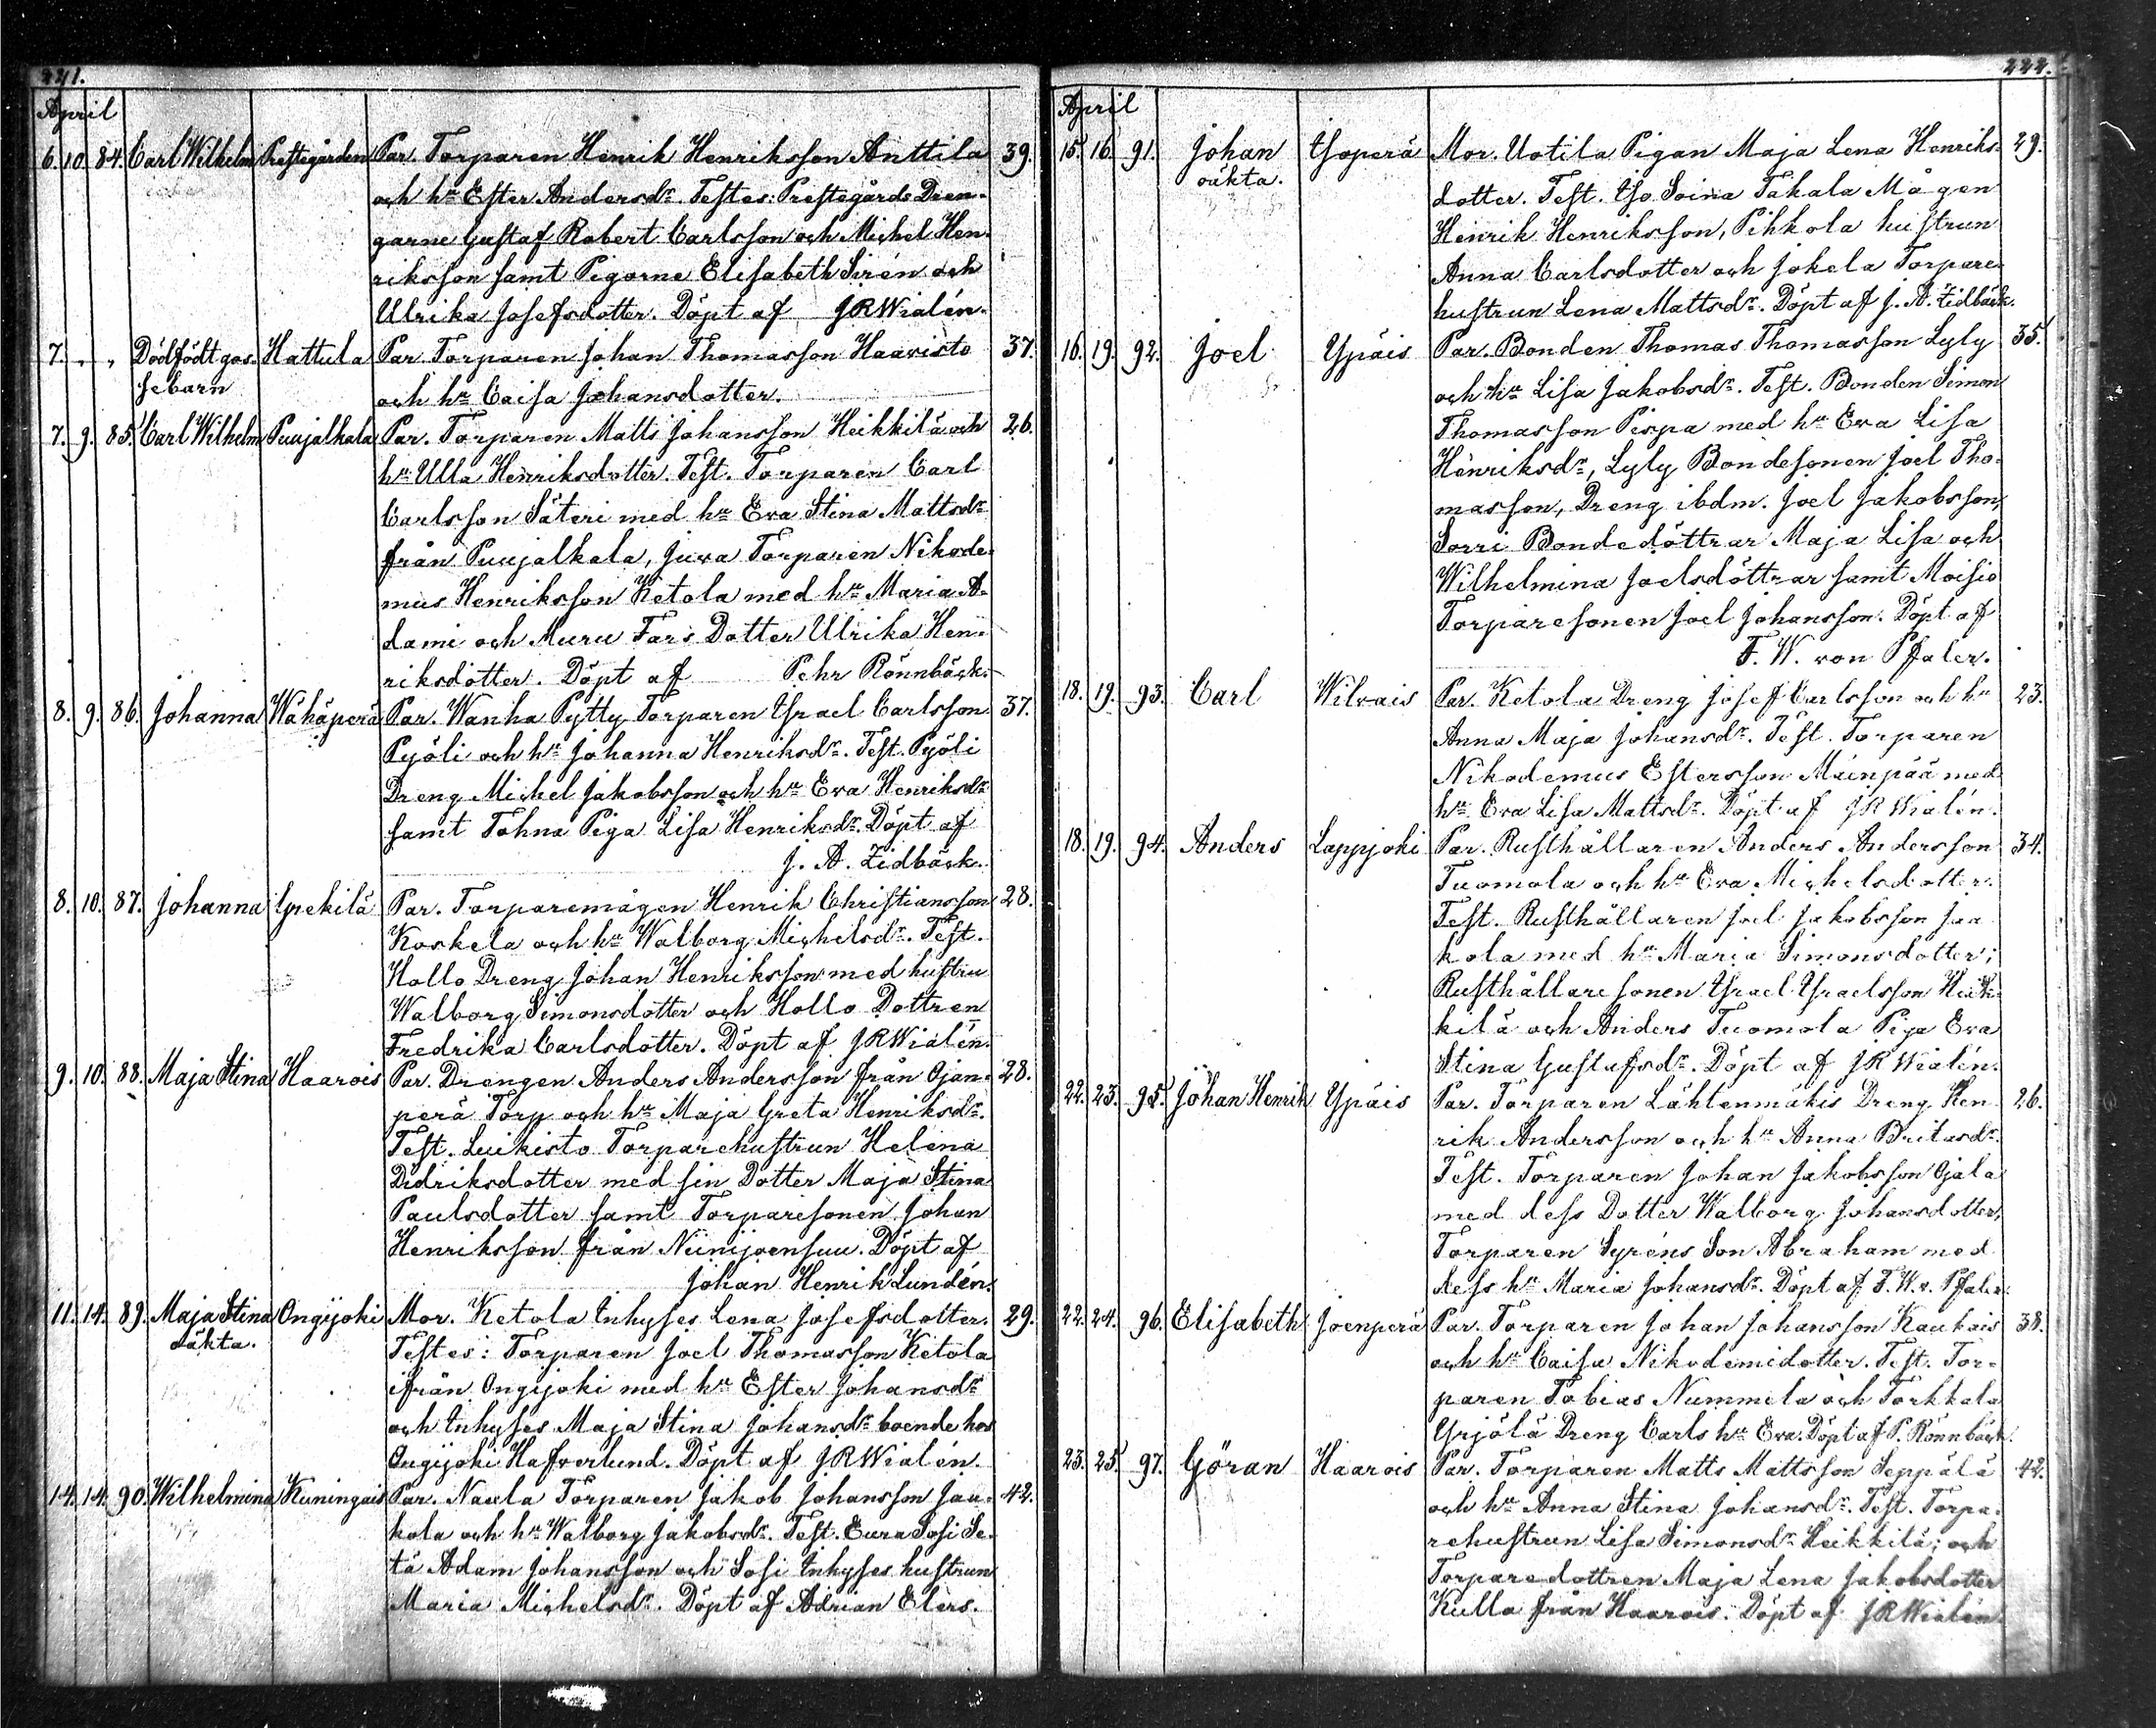 221.
April
6. 10. 84. Carl Wilhelm Prestegården Par. Torparen Henrik Henriksson Anttila 39.
och hu Ester Andersdr. Testes: Prestegårds Dren-
garne Gustaf Robert Carlsson och Michel Hen-
riksson samt Pigorne Elisabeth Sirén och
Ulrika Josefsdotter. Döpt af JRWialén.
7. " " Dödfödt gos- Hattula Par. Torparen Johan Thomasson Haavisto 37.
sebarn och hu Caisa Johansdotter.
7. 9. 85. Carl Wilhelm Puujalkala Par. Torparen Matts Johansson Heikkilä och 26.
hu Ulla Henriksdotter. Test. Torparen Carl
Carlsson Säteri med hu Eva Stina Mattsdr
från Puujalkala, Juva Torparen Nikode-
mus Henriksson Ketola med hu Maria A-
dami och Muru Fars Dotter Ulrika Hen-
riksdotter. Döpt af Pehr Rönnbäck.
8. 9. 86. Johanna Wähäperä Par. Wanha Pytty Torparen Israel Carlsson 37.
Pyöli och hu Johanna Henriksdr. Test. Pyöli
Dreng Michel Jakobsson och hu Eva Henriksdr
samt Tohna Piga Lisa Henriksdr. Döpt af
J. A. Zidbäck.
8. 10. 87. Johanna Ipekilä Par. Torparemågen Henrik Christiansson 28.
Koskela och hu Walborg Michelsdr. Test.
Hollo Dreng Johan Henriksson med hustru
Walborg Simonsdotter och Hollo Dottren
Fredrika Carlsdotter. Döpt af JRWialén.
9. 10. 88. Maja Stina Haarois Par. Drengen Anders Andersson från Ojan- 28.
perä Torp och hu Maja Greta Henriksdr.
Test. Luikisto Torparehustrun Helena
Didriksdotter med sin Dotter Maja Stina
Paulsdotter samt Torparesonen Johan
Henriksson från Niinijoensuu. Döpt af
Johan Henrik Lundén.
11. 14. 89. Maja Stina Ongijoki Mor. Ketola Inhyses Lena Josefsdotter. 29.
oäkta. Testes: Torparen Joel Thomasson Ketola
ifrån Ongijoki med hu Ester Johansdr
och Inhyses Maja Stina Johansdr boende hos
Ongijoki Hafverlund. Döpt af JRWialén.
14. 14. 90. Wilhelmina Kuningais Par. Naula Torparen Jakob Johansson Jau- 42.
kola och hu Walborg Jakobsdr. Test. Eura Sosi Se-
tä Adam Johansson och Sosi Inhyses hustrun
Maria Michelsdr. Döpt af Adrian Elers.
222.
April
15. 16. 91. Johan Isoperä Mor. Uotila Pigan Maja Lena Henriks- 29.
oäkta. dotter. Test. Iso Soina Takala Mågen
Henrik Henriksson, Pihkola hustrun
Anna Carlsdotter och Jokela Torpare-
hustrun Lena Mattsdr. Döpt af J. A. Zidbäck.
16. 19. 92. Joel Ypäis Par. Bonden Thomas Thomasson Lyly 35.
och hu Lisa Jakobsdr. Test. Bonden Simon
Thomasson Pispa med hu Eva Lisa
Henriksdr, Lyly Bondesonen Joel Tho-
masson, Dreng ibdm. Joel Jakobsson,
Sorri Bondedöttrar Maja Lisa och
Wilhelmina Joelsdöttrar samt Moisio
Torparesonen Joel Johansson. Döpt af
F. W. von Pfaler.
18. 19. 93. Carl Wilvais Par. Ketola Dreng Josef Carlsson och hu 23.
Anna Maja Johansdr. Test. Torparen
Nikodemus Estersson Mäenpää med
hu Eva Lisa Mattsdr. Döpt af JRWialén.
18. 19. 94. Anders Lappjoki Par. Rusthållaren Anders Andersson 34.
Tuomola och hu Eva Michelsdotter.
Test. Rusthållaren Joel Jakobsson Jaa
kola med hu Maria Simonsdotter;
Rusthållaresonen Israel Israelsson Heik-
kilä och Anders Tuomola Piga Eva
Stina Gustafsdr. Döpt af JRWialén.
22. 23. 95. Johan Henrik Ypäis Par. Torparen Lähtenmäkis Dreng Hen 26.
rik Andersson och hu Anna Britasdr.
Test. Torparen Johan Jakobsson Ojala
med dess Dotter Walborg Johansdotter,
Torparen Syréns Son Abraham med
dess hu Maria Johansdr. Döpt af F. W. v. Pfaler.
22. 24. 96. Elisabeth Joenperä Par. Torparen Johan Johansson Kaukais 38.
och hu Caisa Nikodemidotter. Test. Tor-
paren Tobias Nummela och Torkkala
Yrjölä Dreng Carls hu Eva. Döpt af P. Rönnbäck.
23. 25. 97. Göran Haarois Par. Torparen Matts Mattsson Seppälä 42.
och hu Anna Stina Johansdr. Test. Torpa-
rehustrun Lisa Simonsdr Heikkilä; och
Torparedottren Maja Lena Jakobsdotter
Kulla från Haarois. Döpt af JRWialén